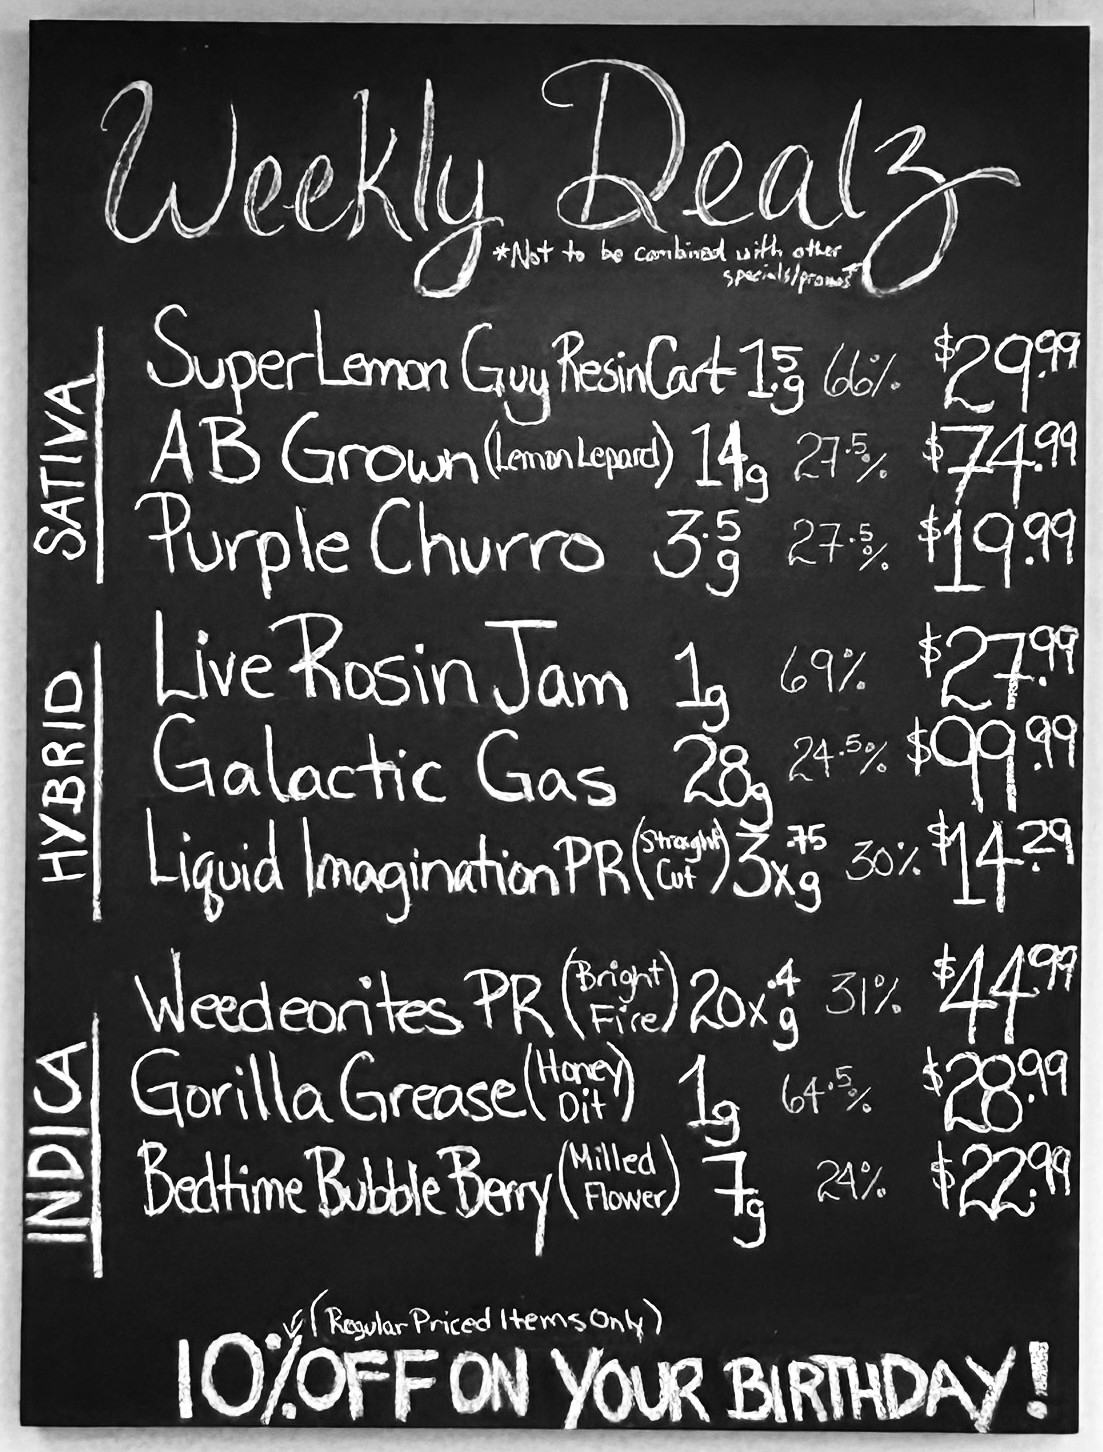 Weekly Dealz
*Not to be combined with other
specials/promos*
SATIVA
Super Lemon Guy Resin Cart 1.5g 66% $29.99
AB Grown (Lemon Lepard) 14g 27.5% $74.99
Purple Churro 3.5g 27.5% $19.99
HYBRID
Live Rosin Jam 1g 69% $27.99
Galactic Gas 28g 24.5% $99.99
Liquid Imagination PR (Straght Cut) 3x.75g 30% $14.29
INDICA
Weedeorites PR (Bright Fire) 20x.4g 31% $44.99
Gorilla Grease (Honey Dit) 1g 64.5% $28.99
Bedtime Bubble Berry (Milled Flower) 7g 24% $22.99
(Regular Priced Items Only)
10% OFF ON YOUR BIRTHDAY!